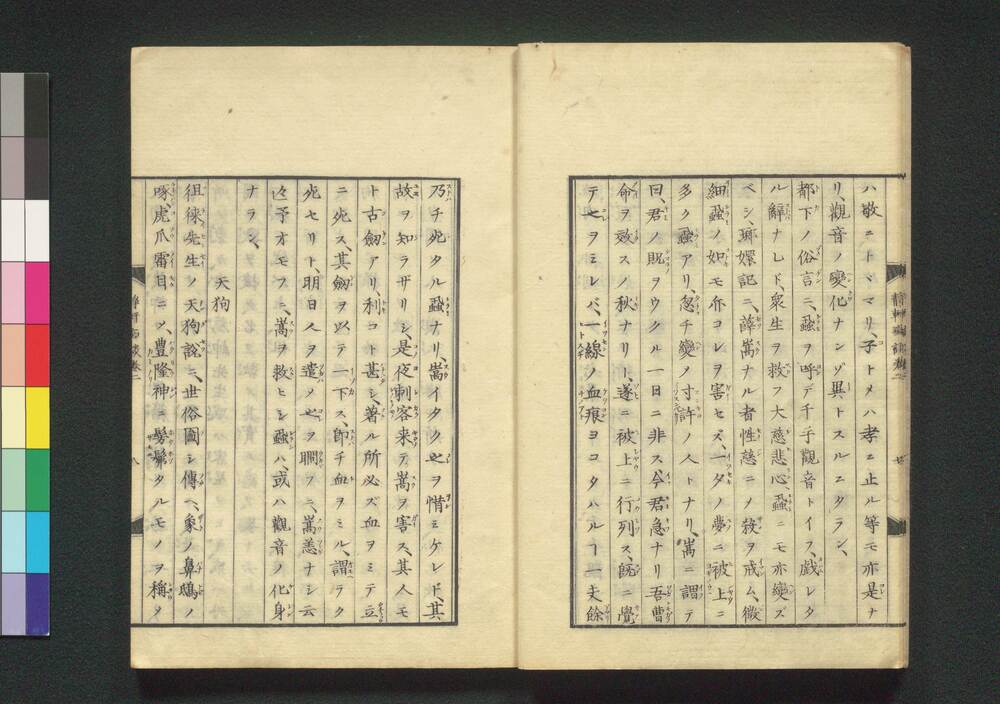 ハ敬ニトヾマリ、子トメハ孝ニ止ル等モ亦是ナ
リ、觀音ノ變化ナンゾ異トスルニタラン、
都下ノ俗言ニ、蝨ヲ呼デ千手觀音トイフ、戯レタ
ル辭ナレド、衆生ヲ救フ大慈悲心、蝨ニモ亦變ズ
ベシ、瑯嬛記ニ、薛嵩ナル者性慈ニノ殺ヲ戒ム、微
細蝨ノ如モ亦コレヲ害セズ、一夕ノ夢ニ被上ニ
多ク蝨アリ、忽チ變ノ寸許ノ人トナリ、嵩ニ謂テ
曰、君ノ貺ヲウクル一日ニ非ス、今君急ナリ吾曹
命ヲ效スノ秋ナリー遂ニ被上ニ行列ス、旣ニ覺
テ之ヲミレバ、一線ノ血痕ヨコタハルヿ一丈餘
乃チ死タル蝨ナリ、嵩イタク之ヲ惜ミケレド、其
故ヲ知ラザリシ、是夜刺客来テ嵩ヲ害ス、其人モ
ト古劔アリ利コト甚シ、著ル所必ズ血ヲミテ立
ニ死ス、其劔ヲ以テ一下ス、卽チ血ヲミル、謂ラク
死セリト、明日人ヲ遣メ之ヲ瞷フニ、嵩恙ナシ云
々予オモフニ、嵩ヲ救ヒシ蝨ハ、或ハ觀音ノ化身
ナラン、
天狗
徂徠先生ノ天狗說ニ、世俗圖シ傳ヘ、象ノ鼻鴟ノ
啄、虎爪雷目ニツ、豊隆神ニ髣髴タルモノヲ稱タ